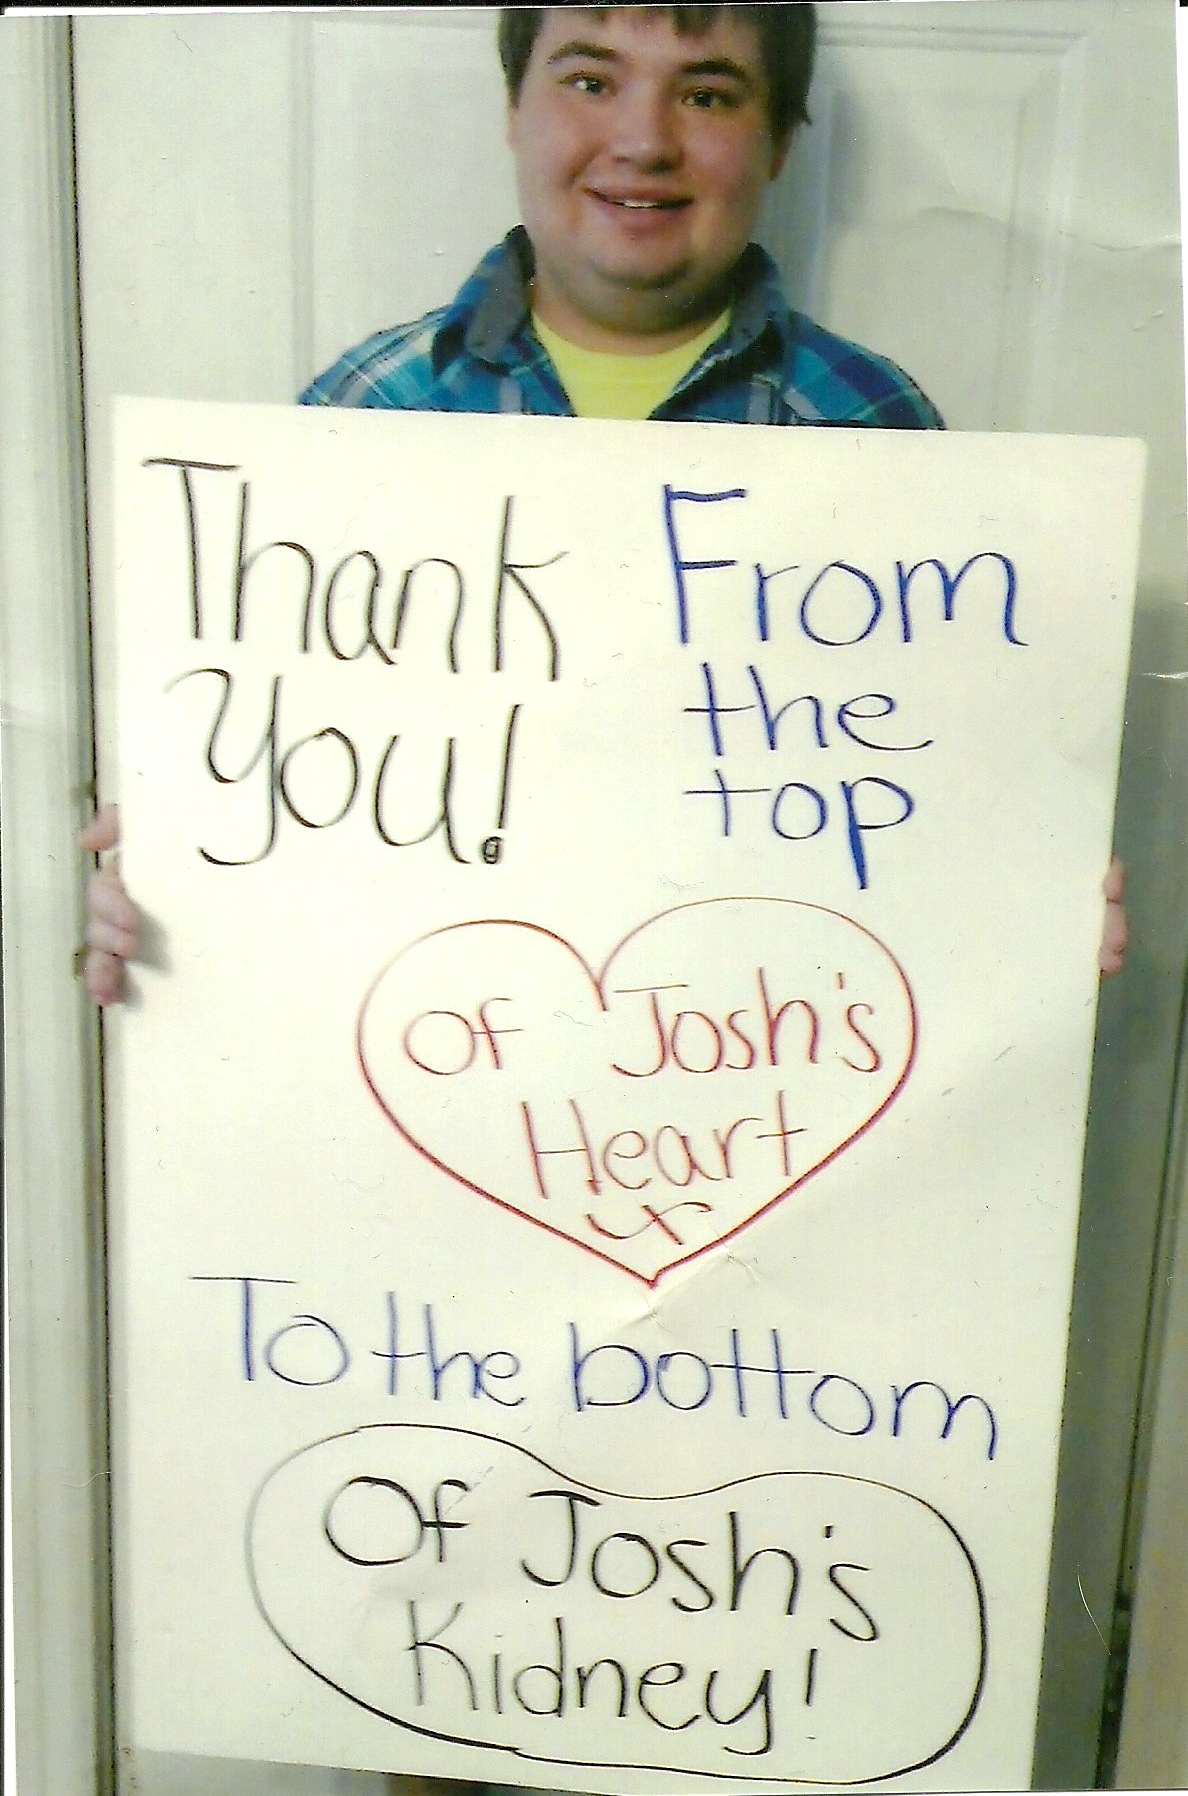 Thank
You!
From
the
top
Of Josh's
Heart
To the bottom
Of Josh's
Kidney!